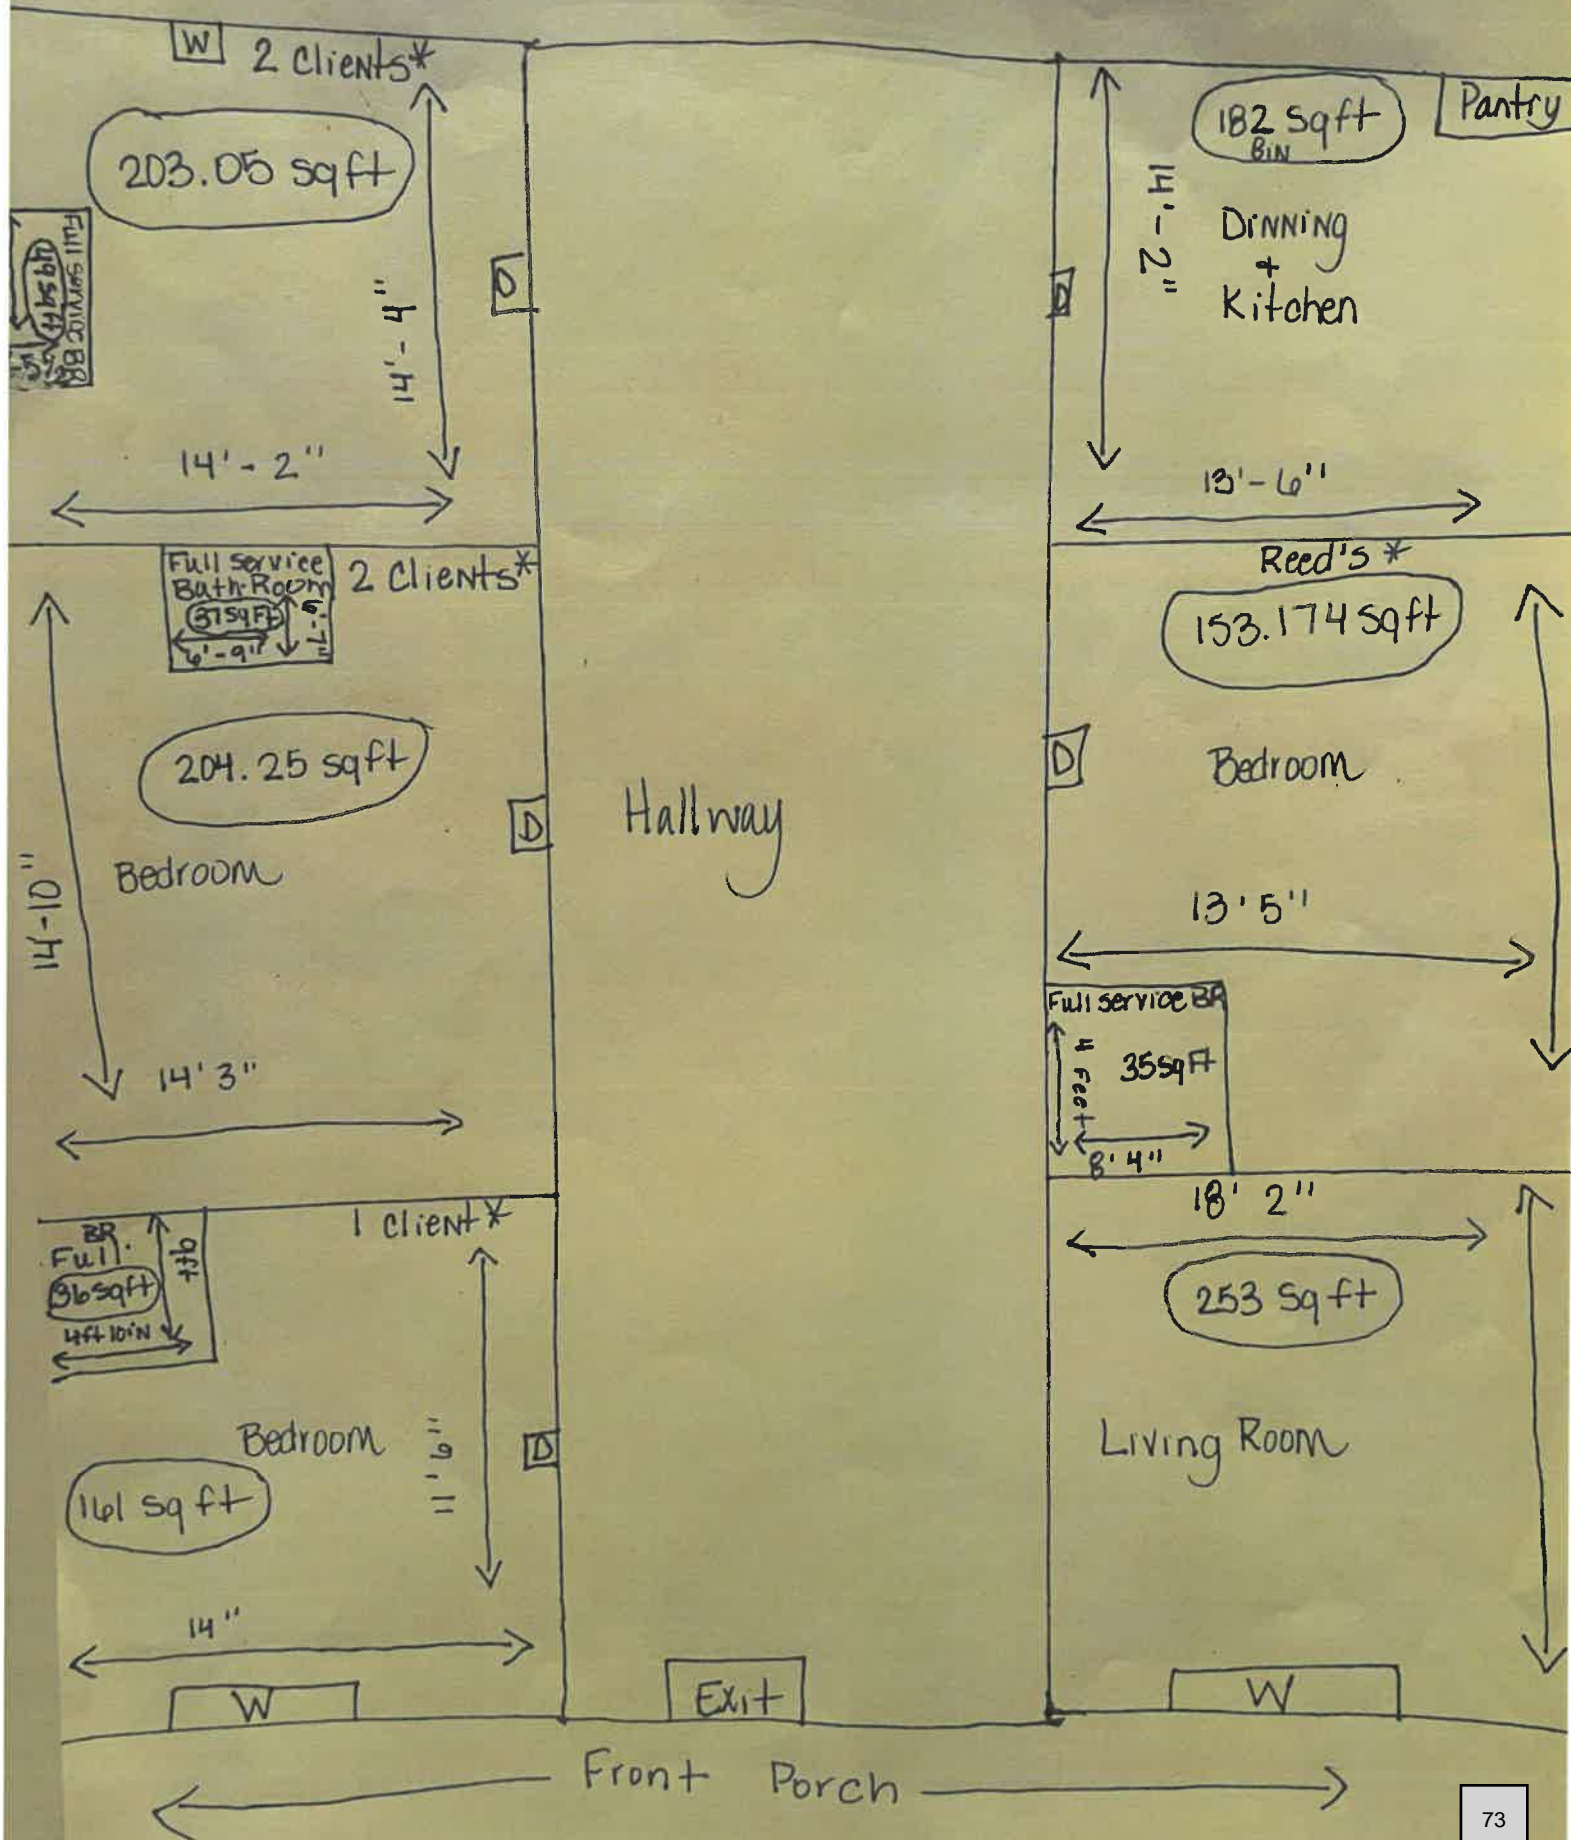 W
2 Clients*
203.05 sqft
Full service BR
49 sqft
14'-4"
D
14'-2"
182 Sqft
8IN
Pantry
14'-2"
Dinning
+
Kitchen
D
13'-6"
Full service
Bath-Room
37 SqFt
6'-9"
2 Clients*
204.25 sqft
Bedroom
14-10"
D
14'3"
Hallway
Reed's *
153.174 Sqft
D
Bedroom
13'5"
Full service BR
4 Feet
35SqFt
8'4"
BR
Full
36sqft
9ft
4ft 10iN
1 client*
Bedroom
11'-6"
D
161 Sqft
14"
W
Exit
18' 2"
253 Sqft
Living Room
W
Front Porch
73